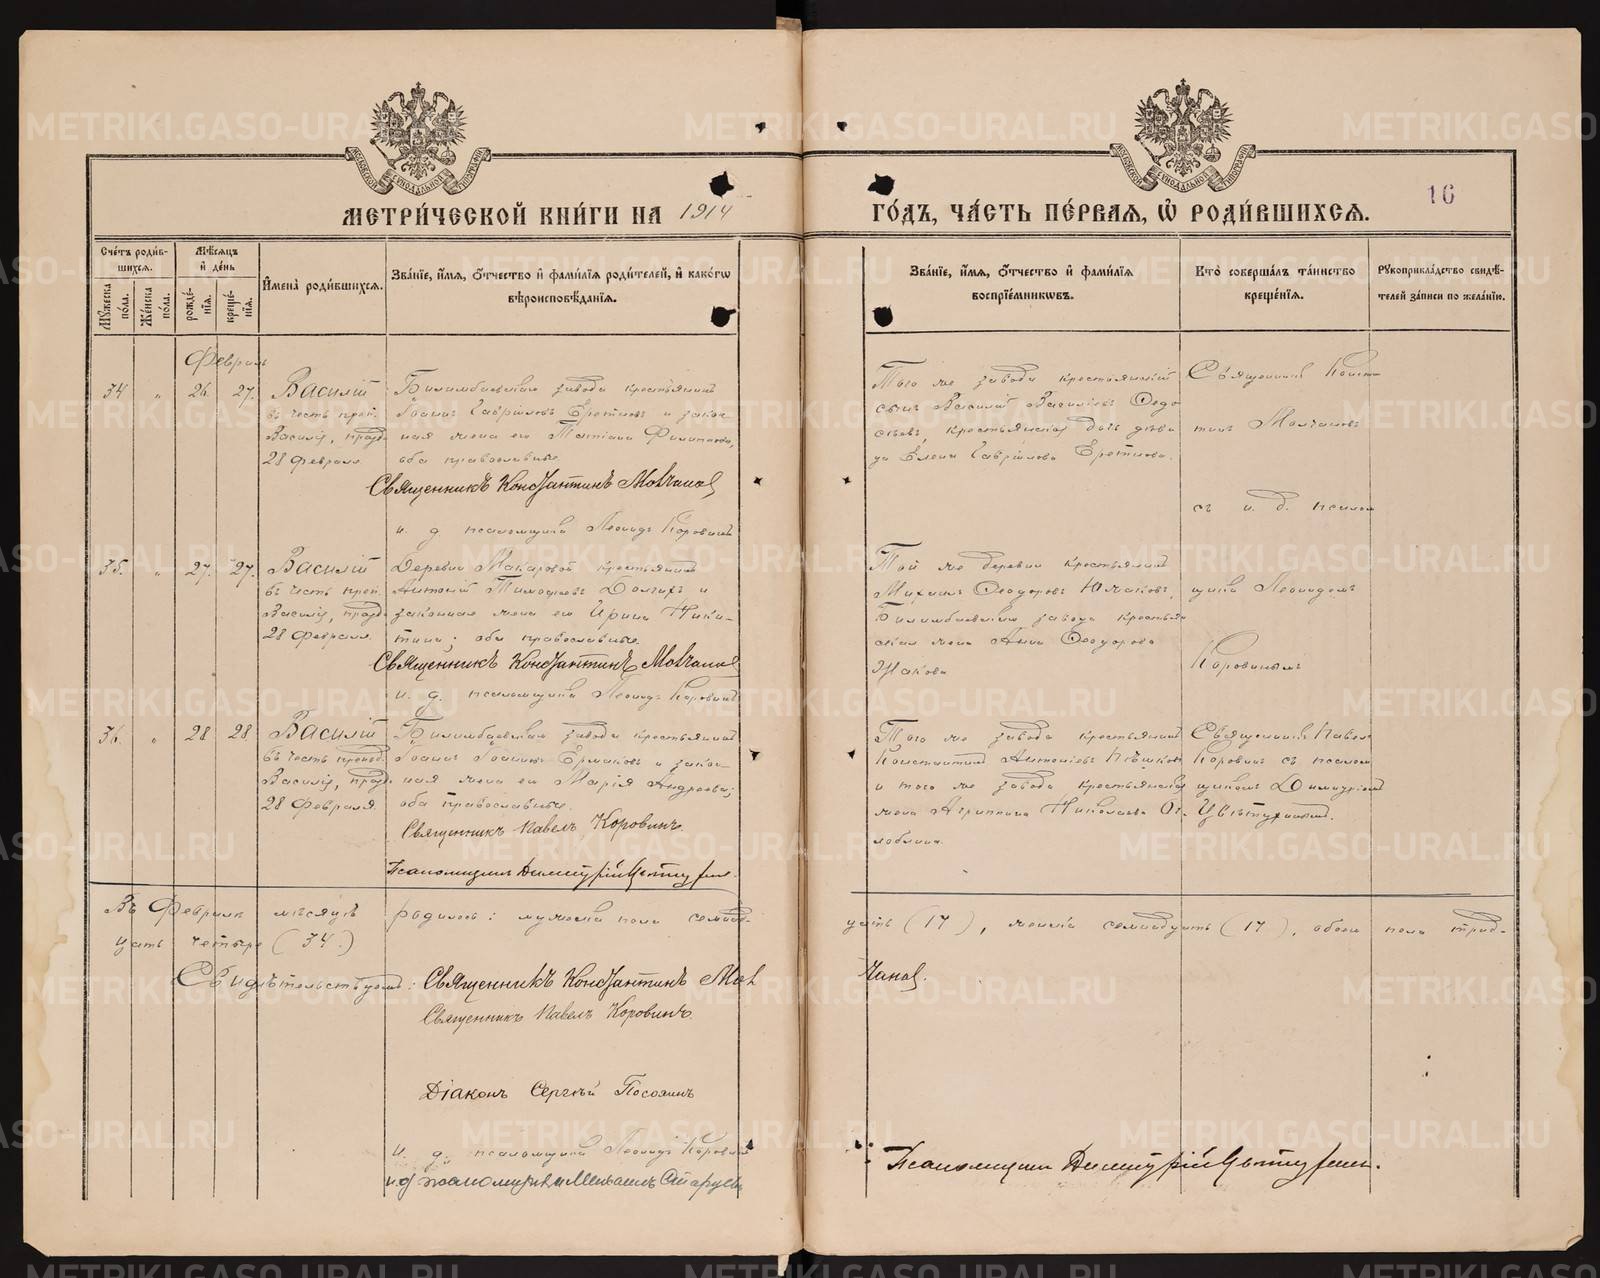 МЕТРИ́ЧЕСКОЙ КНИ́ГИ НА 1914
ГО́ДЪ, ЧА́СТЬ ПЕ́РВАЯ, Ѡ РОДИ́ВШИХСЯ.
16
Сче́тъ роди́в-
шихся.
Мѣ́сяцъ
и де́нь
Мꙋ́жеска по́ла.
Же́нска по́ла.
рожде́-
нїя.
креще́-
нїя.
Имена̀ роди́вшихся.
Зва́нїе, и́мя, о́тчество и фами́лїя роди́телей, и како́гѡ
вѣроисповѣ́данїя.
Зва́нїе, и́мя, о́тчество и фами́лїя
воспрїе́мниковъ.
Кто̀ соверша́лъ та́инство
креще́нїя.
Рꙋкоприкла́дство свидѣ́-
телей за́писи по жела́нїю.
Февраль
34 " 26. 27.
Василій
въ честь преп.
Василія, празд.
28 февраля
Билимбаевскаго завода крестьянинъ
Іоаннъ Гавріиловъ Еретновъ и закон-
ная жена его Татіана Филиппова,
оба православные.
Священникъ Константинъ Молчановъ
и. д. псаломщика Леонидъ Коровинъ
Того же завода крестьянскій
сынъ Василій Васильевъ Федо
сѣевъ, крестьянская дочь дѣви
ца Елена Гавріилова Еретнова.
Священникъ Конста
тинъ Молчановъ
съ и. д. псалом
35. " 27. 27.
Василій
въ честь преп.
Василія, празд.
28 февраля.
Деревни Макаровой крестьянинъ
Антоній Тимофеевъ Долгихъ и
законная жена его Ирина Ники-
тина; оба православные.
Священникъ Константинъ Молчановъ
и. д. псаломщика Леонидъ Коровинъ
Той же деревни крестьянинъ
Михаилъ Ѳеодоровъ
Билимбаевскаго завода крестьян
ская жена Анна Ѳеодорова
щика Леонидомъ
Коровинымъ
36. " 28 28.
Василій
въ честь препод.
Василія, празд.
28 февраля.
Билимбаевскаго завода крестьянинъ
Іоаннъ Іоанновъ Ермаковъ и закон-
ная жена его Марія Андреева;
оба православные.
Священникъ Павелъ Коровинъ.
Псаломщикъ Димитрій
Того же завода крестьянинъ
Константинъ Антоніевъ
и того же завода крестьянская
жена Агриппина Николаева Ог-
лоблина.
Священникъ Павелъ
Коровинъ съ псалом
щикомъ Димитріемъ
Въ февралѣ мѣсяцѣ родилось: мужеска пола семнад-
цать (17), женска семнадцать (17), обоего пола трид-
цать четыре (34.)
Свидѣтельствуемъ: Священникъ Константинъ Молчановъ.
Священникъ Павелъ Коровинъ.
Діаконъ Сергѣй
и. д. псаломщика Леонидъ Коровинъ
и.д. псаломщика Михаилъ
Псаломщикъ Димитрій
METRIKI.GASO-URAL.RU